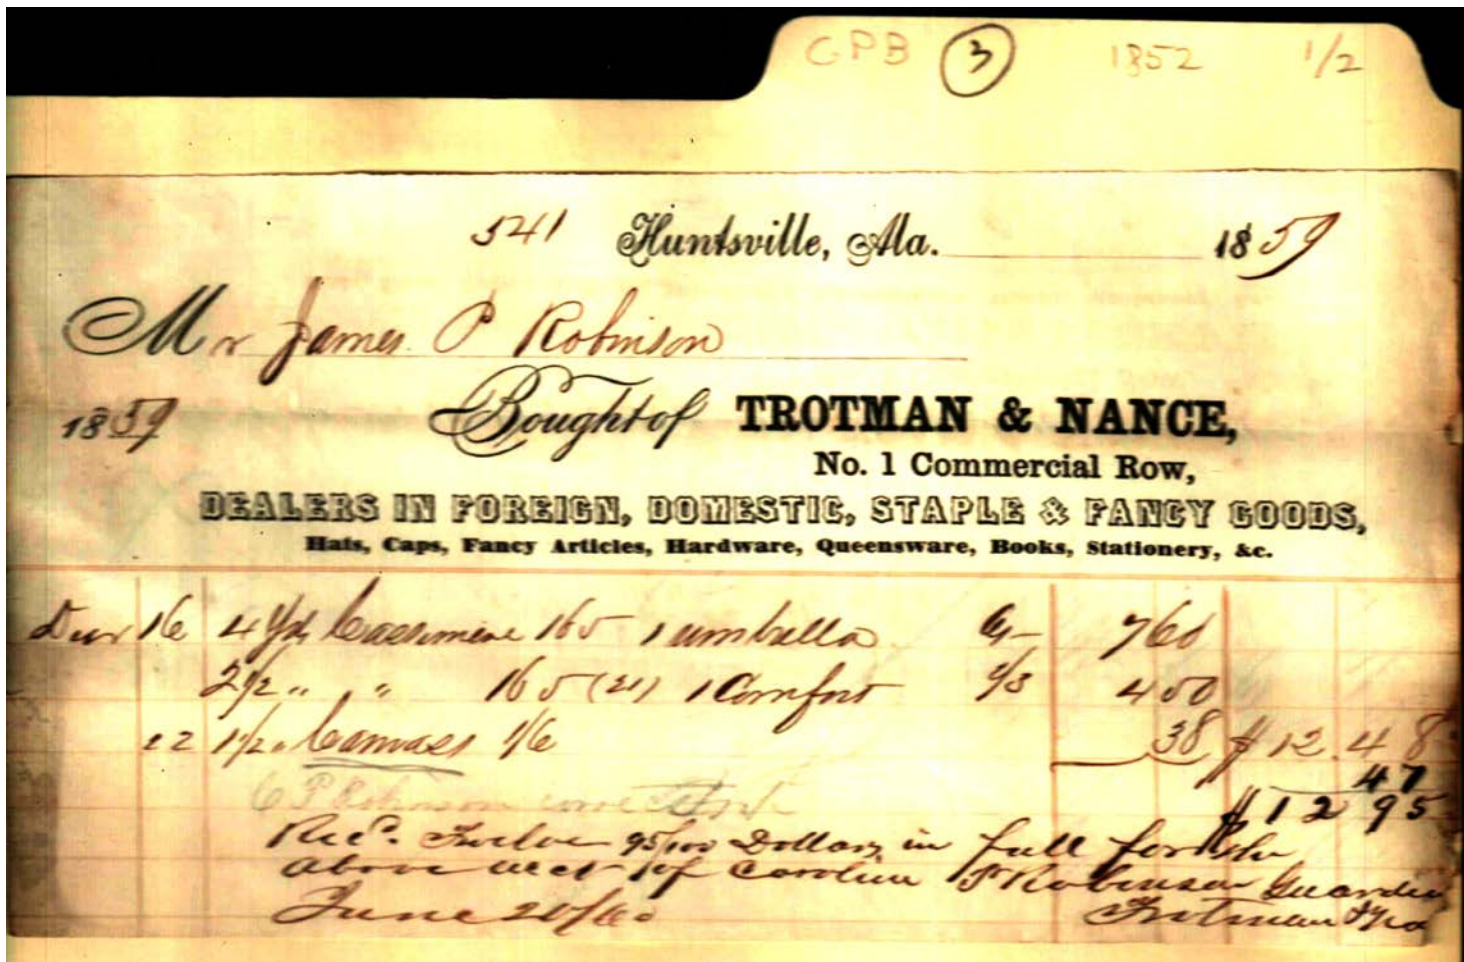 GPB 3 1852 1/2
541 Huntsville, Ala. 1859
Mr James P Robinson
1859 Bought of TROTMAN & NANCE,
No. 1 Commercial Row,
DEALERS IN FOREIGN, DOMESTIC, STAPLE & FANCY GOODS,
Hats, Caps, Fancy Articles, Hardware, Queensware, Books, Stationery, &c.
16 4 Yds Cassimere 165 1 umbrella 6/- 760
2 1/2 " " 165 (21) 1 Comfort 2/3 450
22 1 1/2 " Canvass 1/6 38 $12.48
47
C P Robinson $12 95
Recd. Twelve 95/100 Dollars in full for the
above acct of Caroline P Robinson Guardian
June 20/60 Trotman